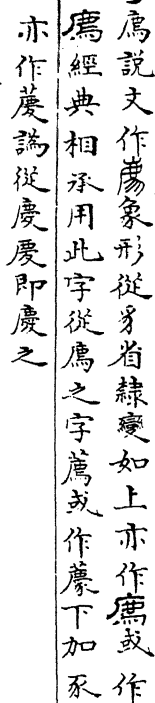 廌說文作象形從豸省隸變如上亦作廌或作
廌經典相承用此字從廌之字薦或作下加豕
亦作譌從慶慶即慶之